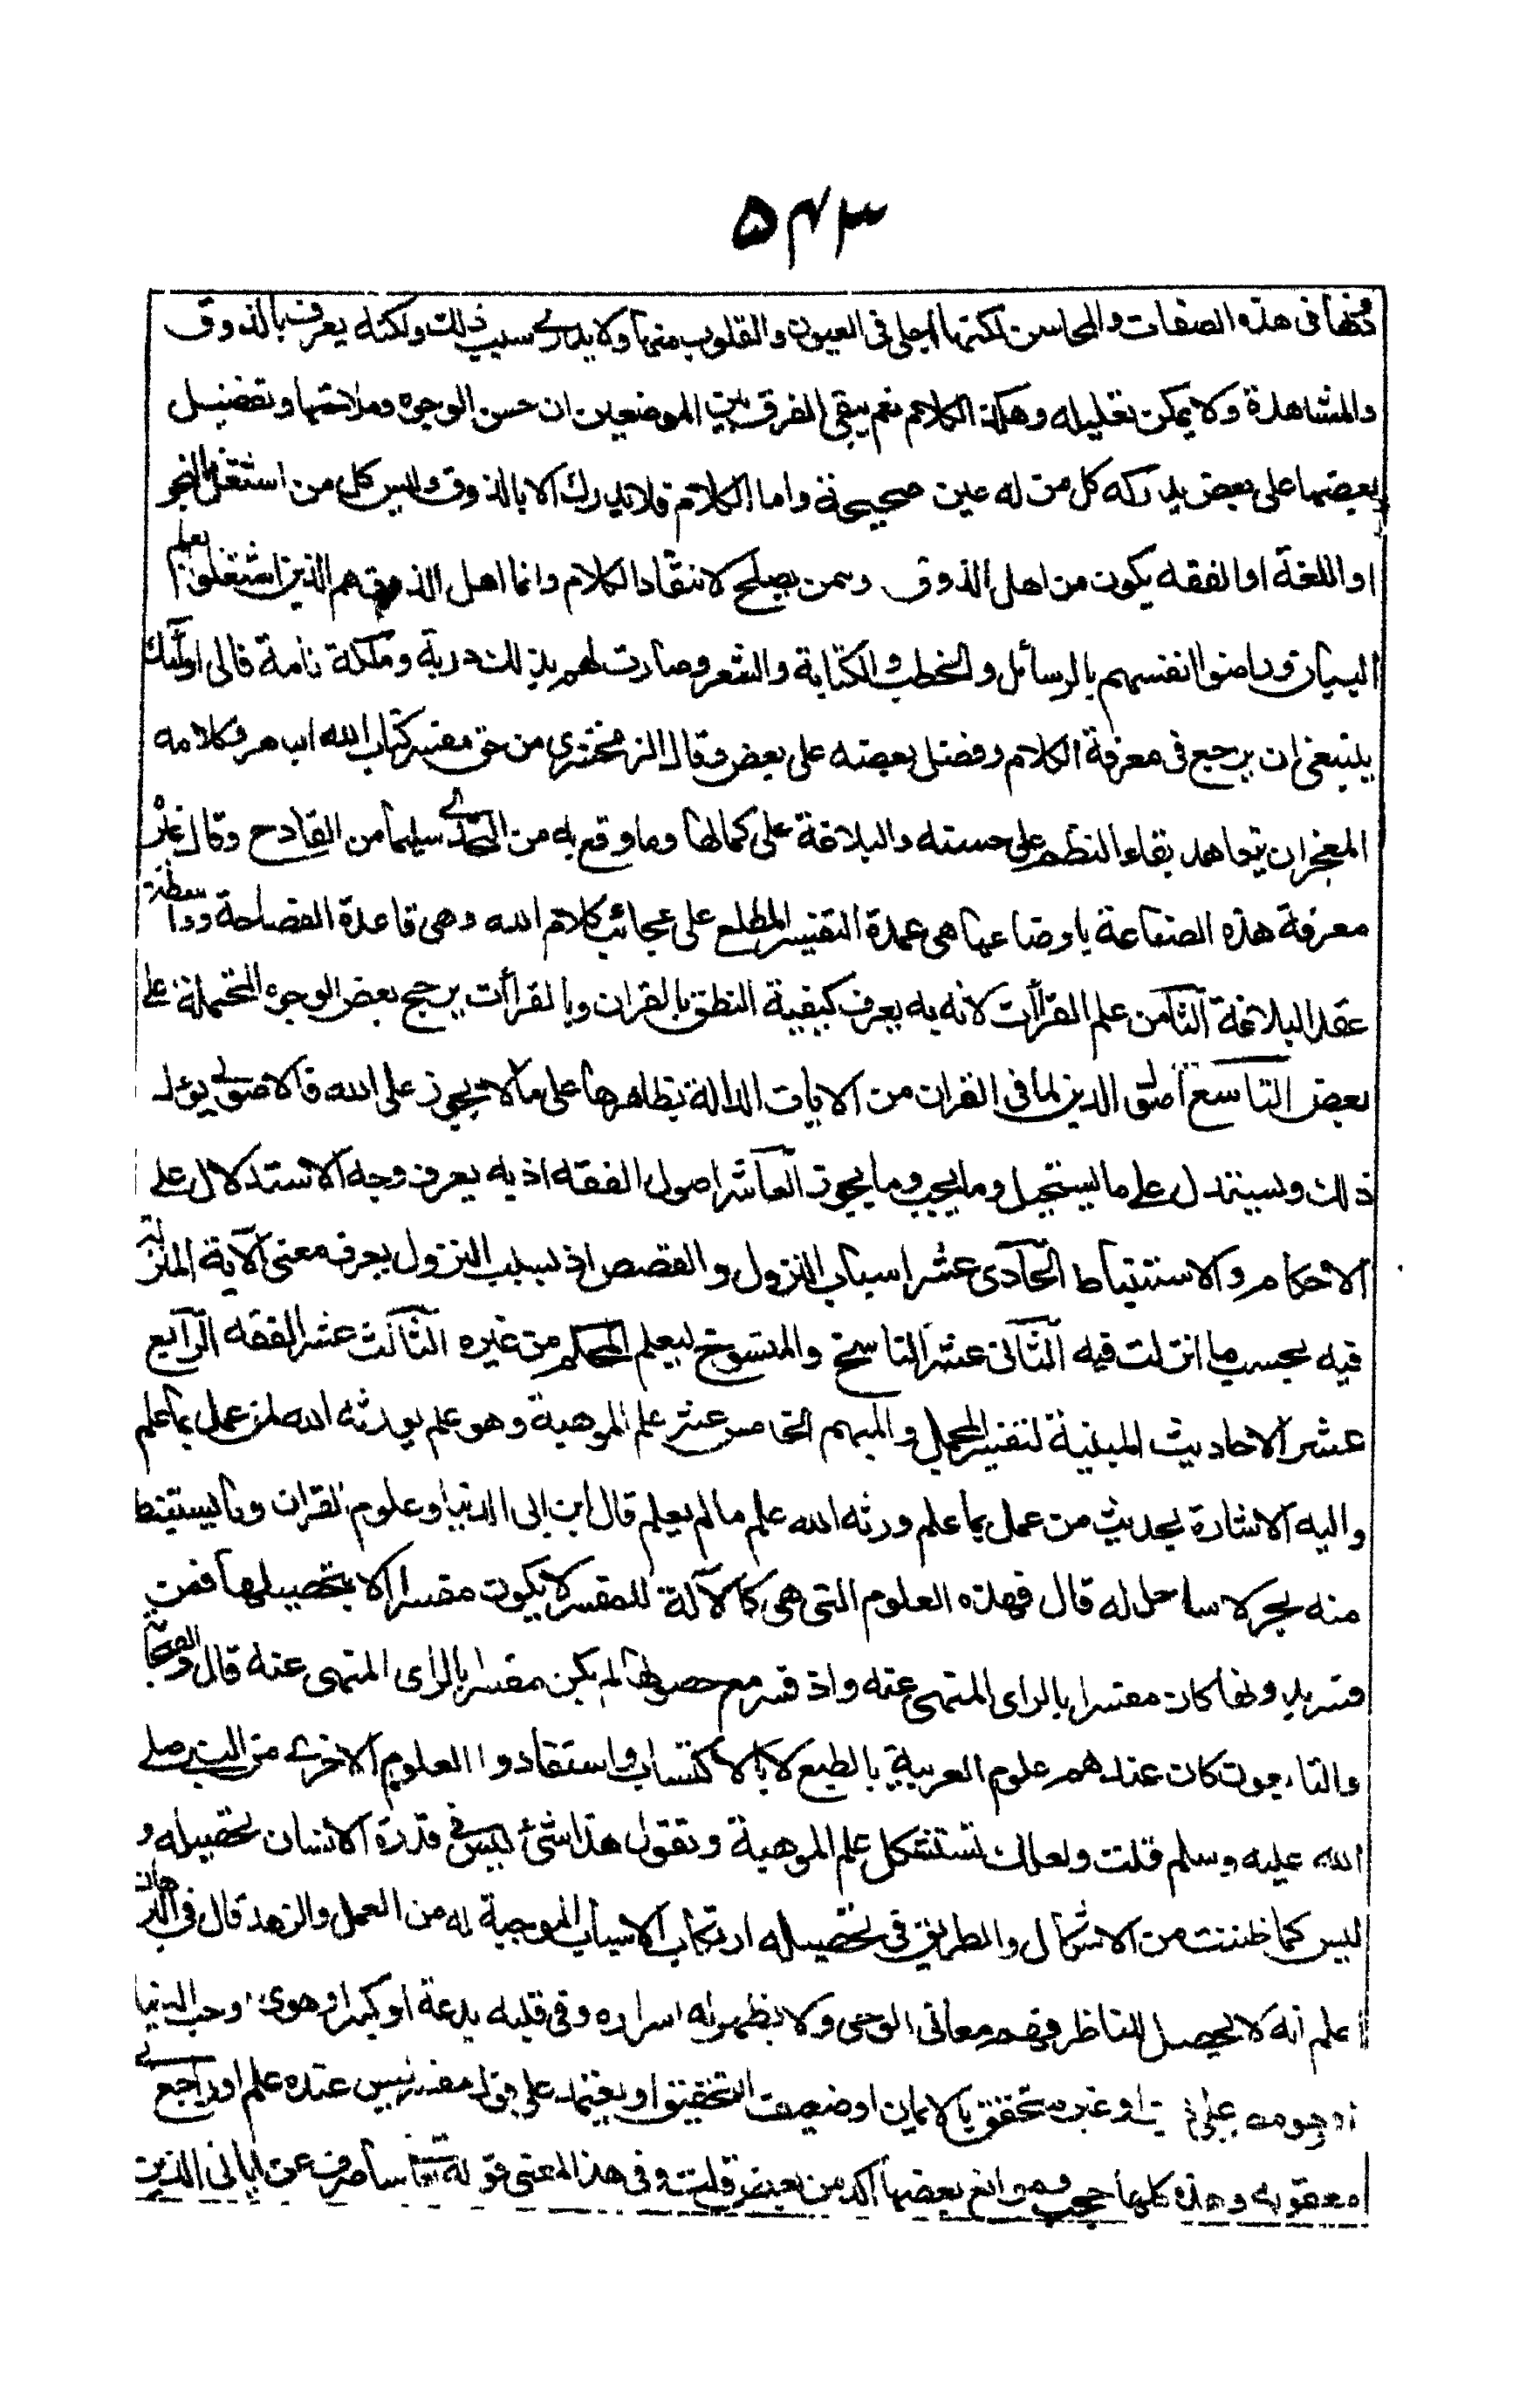 ۵۴۳
دونها فى هذه الصفات والمحاسن لكنها احلى فى العيون والقلوب منها ولا يدرى سبب ذلك ولكنه يعرف بالذوق
والمشاهدة ولا يمكن تعليله وهكذا الكلام نعم يبقى الفرق بين الموضعين ان حسن الوجوه وملاحتها وتفضيل
بعضها على بعض يدركه كل من له عين صحيحة واما الكلام فلا يدرك الا بالذوق وليس كل من اشتغل بالنحو
او اللغة او الفقه يكون من اهل الذوق وممن يصلح لانتقاد الكلام وانما اهل الذوق هم الذين اشتغلوا بعلم
البيان وراضوا انفسهم بالرسائل والخطب والكتابة والشعر وصارت لهم بذلك دربة وملكة تامة فالى اولئك
ينبغى ان يرجع فى معرفة الكلام وفضل بعضه على بعض وقال الزمخشرى من حق مفسر كتاب الله الباهر وكلامه
المعجز ان يتعاهد بقاء النظم على حسنه والبلاغة على كمالها وما وقع به من التحدى سليما من القادح وقال غيره
معرفة هذه الصناعة باوضاعها هى عمدة التفسير المطلع على عجائب كلام الله وهى قاعدة الفصاحة وواسطة
عقد البلاغة الثامن علم القرأت لانه به يعرف كيفية النطق بالقران وبالقرأت يرجح بعض الوجوه المحتملة على
بعض التاسع اصول الدين لما فى القران من الايات الدالة بظاهرها على ما لا يجوز على الله فالاصولى يؤل
ذلك ويستدل على ما يستحيل وما يجب وما يجوز العاشر اصول الفقه اذ به يعرف وجه الاستدلال على
الاحكام والاستنباط الحادى عشر اسباب النزول والقصص اذ بسبب النزول يعرف معنى الآية المنزلة
فيه بحسب ما انزلت فيه الثانى عشر الناسخ والمنسوخ ليعلم المحكم من غيره الثالث عشر الفقه الرابع
عشر الاحاديث المبينة لتفسير المجمل والمبهم الخامس عشر علم الموهبة وهو علم يورثه الله لمن عمل بما علم
واليه الاشارة بحديث من عمل بما علم ورثه الله علم ما لم يعلم قال ابن ابى الدنيا وعلوم القران وما يستنبط
منه بحر لا ساحل له قال فهذه العلوم التى هى كالآلة للمفسر لا يكون مفسرا الا بتحصيلها فمن
فسر بدونها كان مفسرا بالراى المنهى عنه واذ فسر مع حصولها لم يكن مفسرا بالراى المنهى عنه قال والصحابة
والتابعون كان عندهم علوم العربية بالطبع لا بالاكتساب واستفادوا العلوم الاخرى من النبى صلى
الله عليه وسلم قلت ولعلك تستشكل علم الموهبة وتقول هذا شئ ليس فى قدرة الانسان تحصيله و
ليس كما ظننت من الاشكال والطريق فى تحصيله ارتكاب الاسباب الموجبة له من العمل والزهد قال فى البرهان
اعلم انه لا يحصل للناظر فهم معانى الوحى ولا يظهر له اسراره وفى قلبه بدعة او كبر او هوى او حب الدنيا
او هو مصر على ذنب او غير متحقق بالايمان او ضعيف التحقيق او يعتمد على قول مفسر ليس عنده علم او راجع الى
معقوله وهذه كلها حجب وموانع بعضها آكد من بعض قلت وفى هذا المعنى قوله تعالى سأصرف عن اياتى الذين